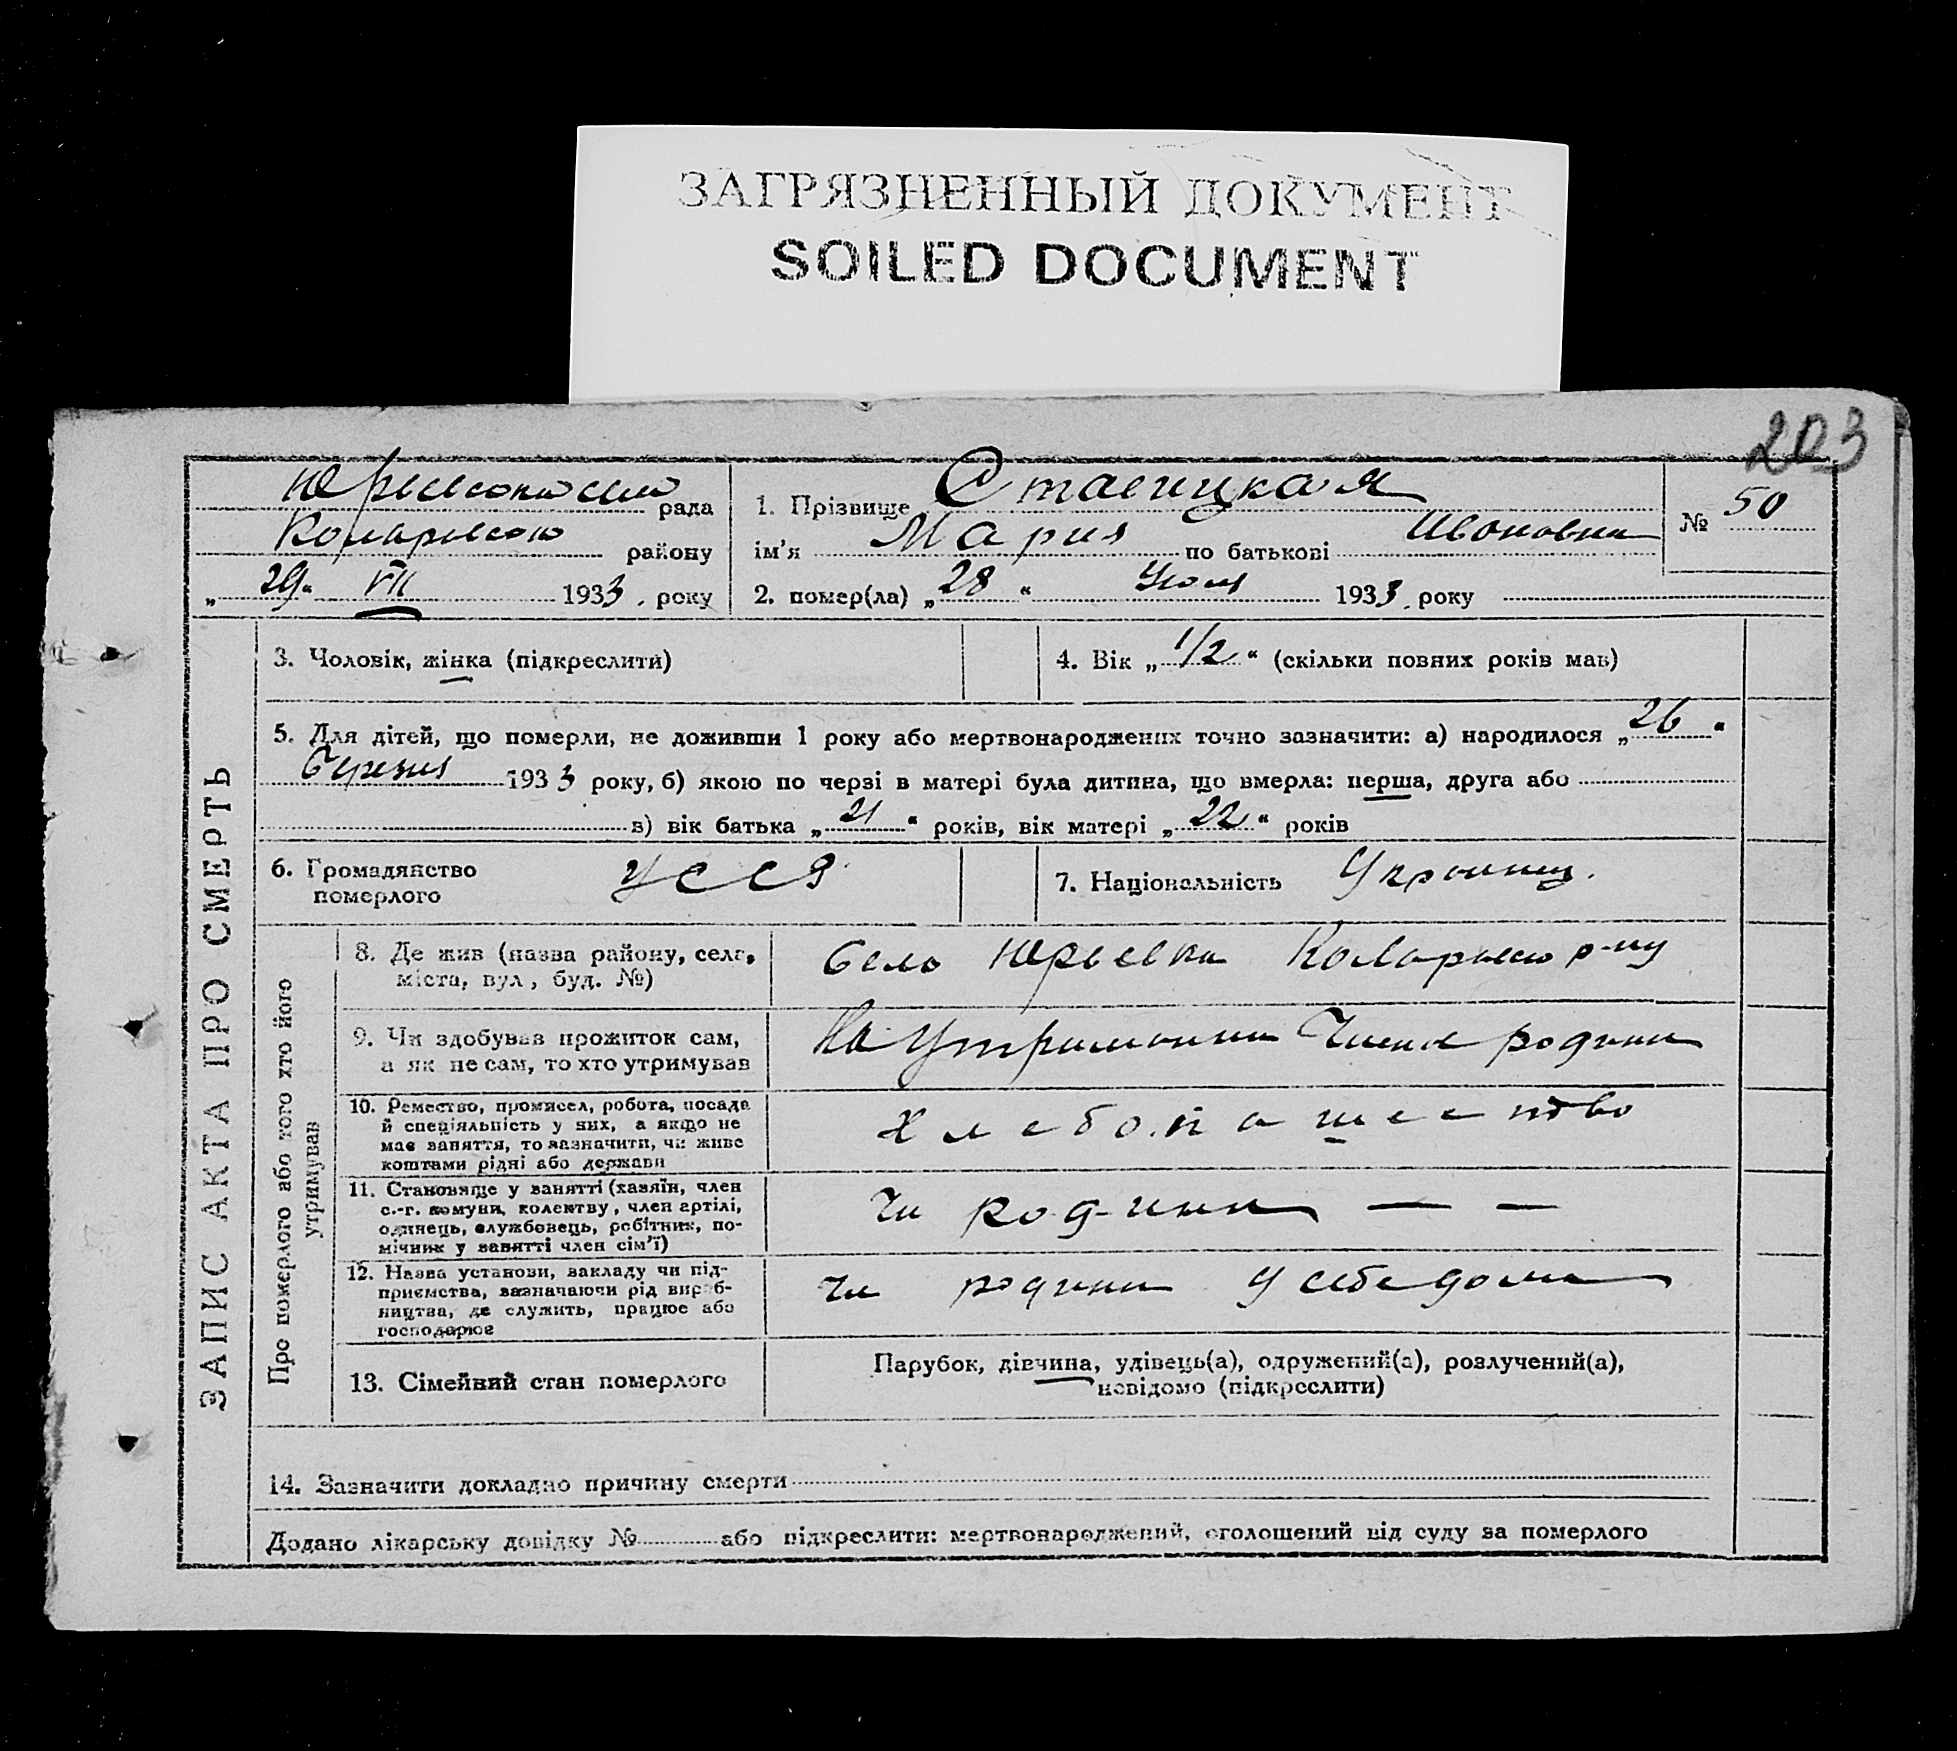 ЗАГРЯЗНЕННЫЙ ДОКУМЕНТ
SOILED DOCUMENT
203
рада
района
„29“ VII 1933. року
1. Прізвище Стаеицкая
ім'я Мария по батькові Ивановна
2. помер(ла) „28“ 1933. року
№ 50
ЗАПИС АКТА ПРО СМЕРТЬ
3. Чоловік, жінка (підкреслити)
4. Вік „1/2“ (скільки повних років мав)
5. Для дітей, що померли, не доживши 1 року або мертвонароджених точно зазначити: а) народилося „26“
1933 року, б) якою по черзі в матері була дитина, що вмерла: перша, друга або
в) вік батька „21“ років, вік матері „22“ років
6. Громадянство
померлого
УССР
7. Національність
Про померлого або того хто його
утримував
8. Де жив (назва району, села,
міста, вул, буд. №)
Село Юрьевка р-ну
9. Чи здобував прожиток сам,
а як не сам, то хто утримував
На родини
10. Ремество, промисел, робота, посада
й спеціяльність у них, а якщо не
має заняття, то зазначити, чи живе
коштами рідні або держави
11. Становище у занятті (хазяїн, член
с.-г. комуни, колективу, член артілі,
одинець, службовець, робітник, по-
мічник у занятті член сім'ї)
Чл родини — —
12. Назва установи, закладу чи під-
приємства, зазначаючи рід вироб-
ництва, де служить, працює або
господарює
Чл родини У себе дома
13. Сімейний стан померлого
Парубок, дівчина, удівець(а), одружений(а), розлучений(а),
невідомо (підкреслити)
14. Зазначити докладно причину смерти
Додано лікарську довідку № або підкреслити: мертвонароджений, оголошений від суду за померлого